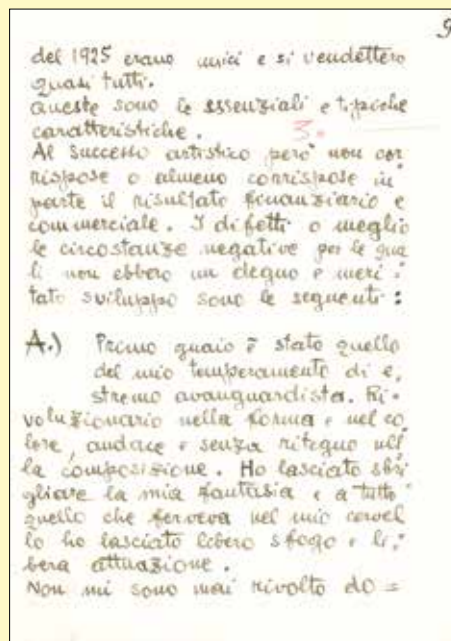 9
del 1925 erano unici e si vendettero
quasi tutti.
Queste sono le essenziali e tipiche
caratteristiche. 3.
Al successo artistico però non cor
rispose o almeno corrispose in
parte il risultato finanziario e
commerciale. I difetti o meglio
le circostanze negative per le qua
li non ebbero un degno e meri =
tato sviluppo sono le seguenti :
A.) Primo guaio è stato quello
del mio temperamento di e,
stremo avanguardista. Ri-
voluzionario nella forma e nel co
lore, audace e senza ritegno nel
la composizione. Ho lasciato sbri
gliare la mia fantasia e a tutto
quello che ferveva nel mio cervel
lo ho lasciato libero sfogo e li =
bera attuazione.
Non mi sono mai rivolto do =